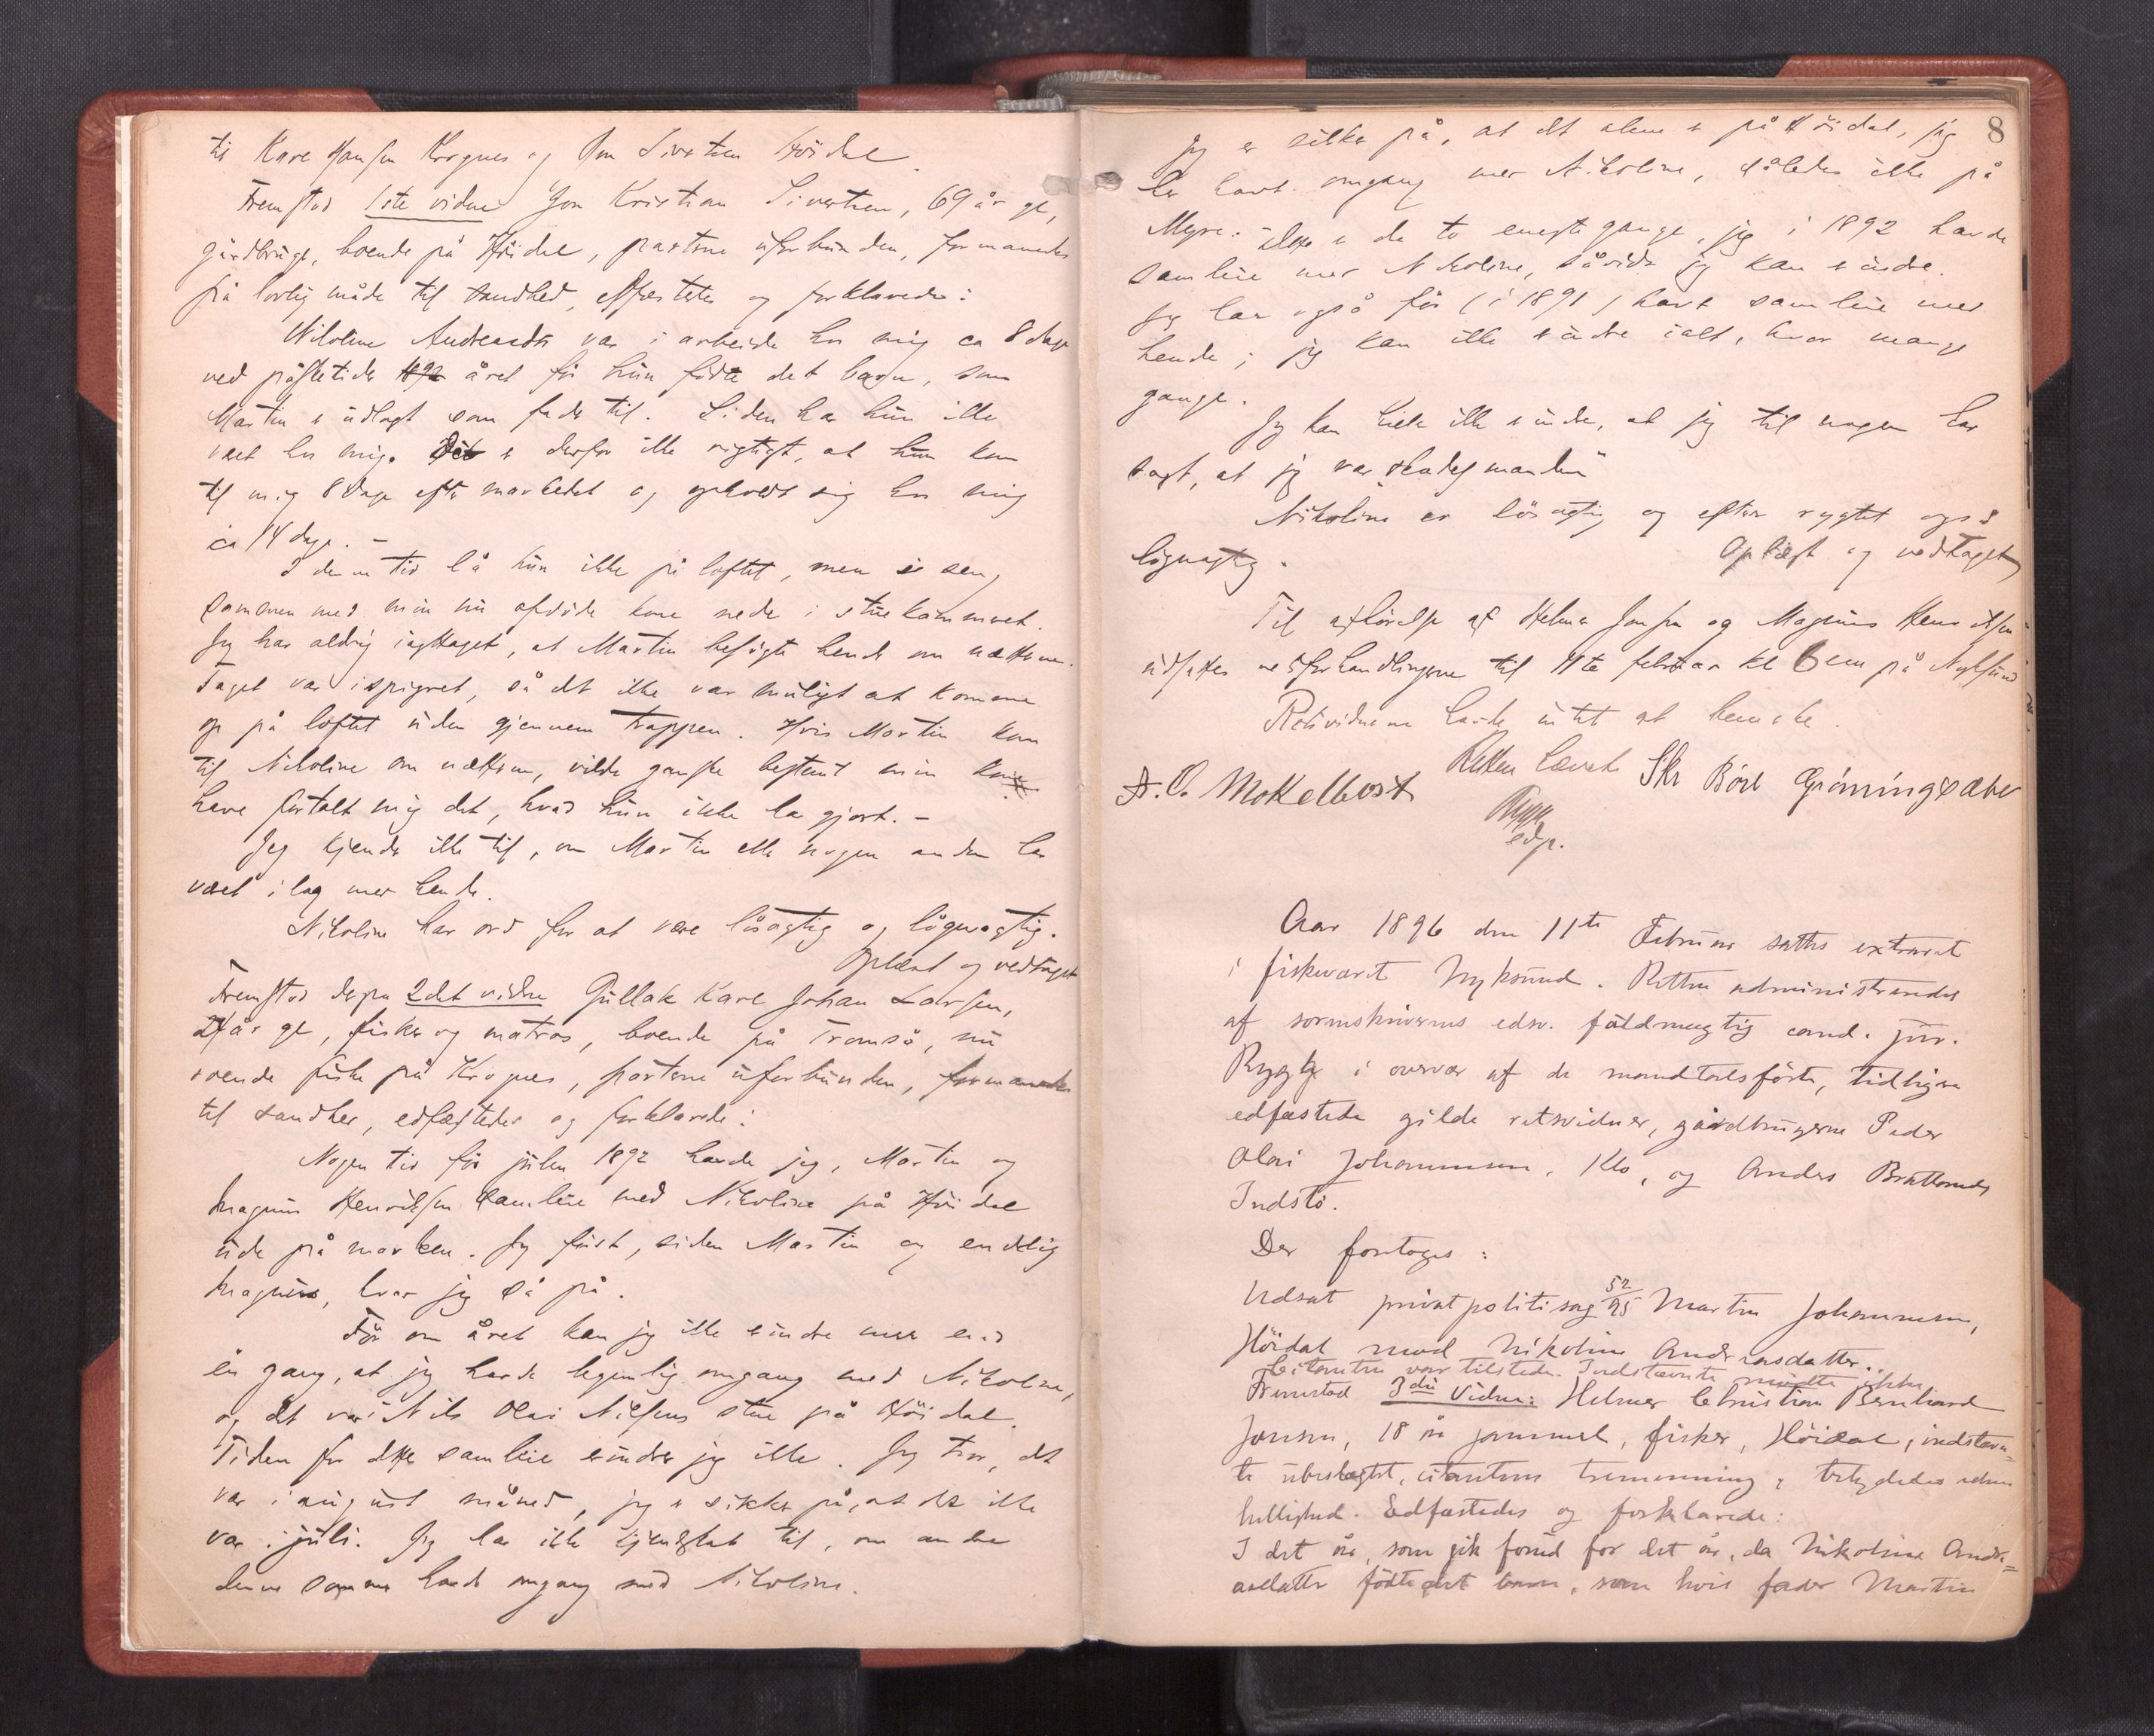 til Kare Hansen Krognes og Jon Sivertsen Höidal
Fremstod 1ste vidne Jon Kristian Sivertsen, 69 år gl,
gårdbruger, boende på Höidal, parterne uforbunden, formanedes
på lovlig måde til sandhed, edfæstetes og forklarede:
Nikoline Andreasdtr var i arbeide hos mig ca 8 dage
ved påsketider 1892 året för hun födte det barn, som
Martin er udlagt som fader til. Siden har hun ikke
været hos mig. Det er derfor ikke rigtigt, at hun kom
til mig 8 dage efter markedet og opholdt sig hos mig
ca 14 dage. –
I denne tid lå hun ikke på loftet, men i seng
sammen med min nu afdöde kone nede i stuekammeret.
Jeg har aldrig iagttaget, at Martin besögte hende om nætterne.
Taget var ispigret, så det ikke var muligt at komme
op på loftet uden gjennem trappen. Hvis Martin kom
til Nikoline om nætterne, vilde ganske bestemt min kone
have fortalt mig det, hvad hun ikke har gjort. –
Jeg kjender ikke til, om Martin eller nogen anden har
været i lag med hende.
Nikoline har ord for at være lösagtig og lögnagtig.
Oplæst og vedtaget
Fremstod derpå 2det vidne Gullak Kare Johan Larsen,
år gl, fisker og matros, boende på Tromsö, nu
roende fiske på Krognes, parterne uforbunden, formanedes
til sandhed, edfæstedes og forklarede:
Nogen tid för julen 1892 havde jeg, Martin og
Magnus Henriksen samleie med Nikoline på Höidal
ude på marken. Jeg först, siden Martin og endelig
Magnus, hvor jeg så på.
För om året kan jeg ikke erindre mer end
én gang, at jeg havde legemlig omgang med Nikoline,
og det var i Nils Olai Nilsens stue på Höidal.
Tiden for dette samleie erindrer jeg ikke. Jeg tror, det
var i august måned, jeg er sikker på, at det ikke
var i juli. Jeg har ikke kjendskab til, om andre
denne sommer havde omgang med Nikoline.
8
Jeg er sikker på, at det alene er på Höidal, jeg
har havt omgang med Nikoline, således ikke på
Myre. Disse er de to eneste gange, jeg i 1892 havde
samleie med Nikoline, såvidt jeg kan erindre.
Jeg har også för (i 1891) havt samleie med
hende; jeg kan ikke erindre ialt, hvor mange
gange.
Jeg kan heller ikke erindre, at jeg til nogen har
sagt, at jeg var "skadesmanden"
Nikoline er lösagtig og efter rygtet også
lögnagtig.
Oplæst og vedtaget
Til afhörelse af Helmer Jonsen og Magnus Henriksen
udsattes nesforhandlingerne til 11te februar kl 6 em på Nyksund
Retsvidnerne havde intet at bemerke.
Retten hævet
A. O. Mokelbost Skr Börl Gröningsæter
Rygg
edsv.
Aar 1896 den 11te Februar sattes extraret
i fiskeværet Nyksund. Retten administreredes
af sorenskriverens edsv. fuldmægtig cand. jur.
Rygg i overvær af de mandtalsförte, tidligere
edfæstede gilde retsvidner, gårdbrugerne Peder
Olai Johannesen, Klo, og Anders
Indstö.
Der foretoges:
Udsat privat politisag 52/95 Martin Johannesen,
Höidal mod Nikoline Andreasdatter.
Citanten var tilstede. Indstævnte mödte ikke.
Fremstod 3die Vidne: Helmer Christian Bernhard
Jonsen, 18 år gammel, fisker, Höidal, indstævn-
te ubeslægtet, citantens tremenning, betydedes edens
hellighed. Edfæstedes og forklarede:
I det år, som gik forud for det år, da Nikoline Andre=
asdatter födte det barn, som hvis fader Martin